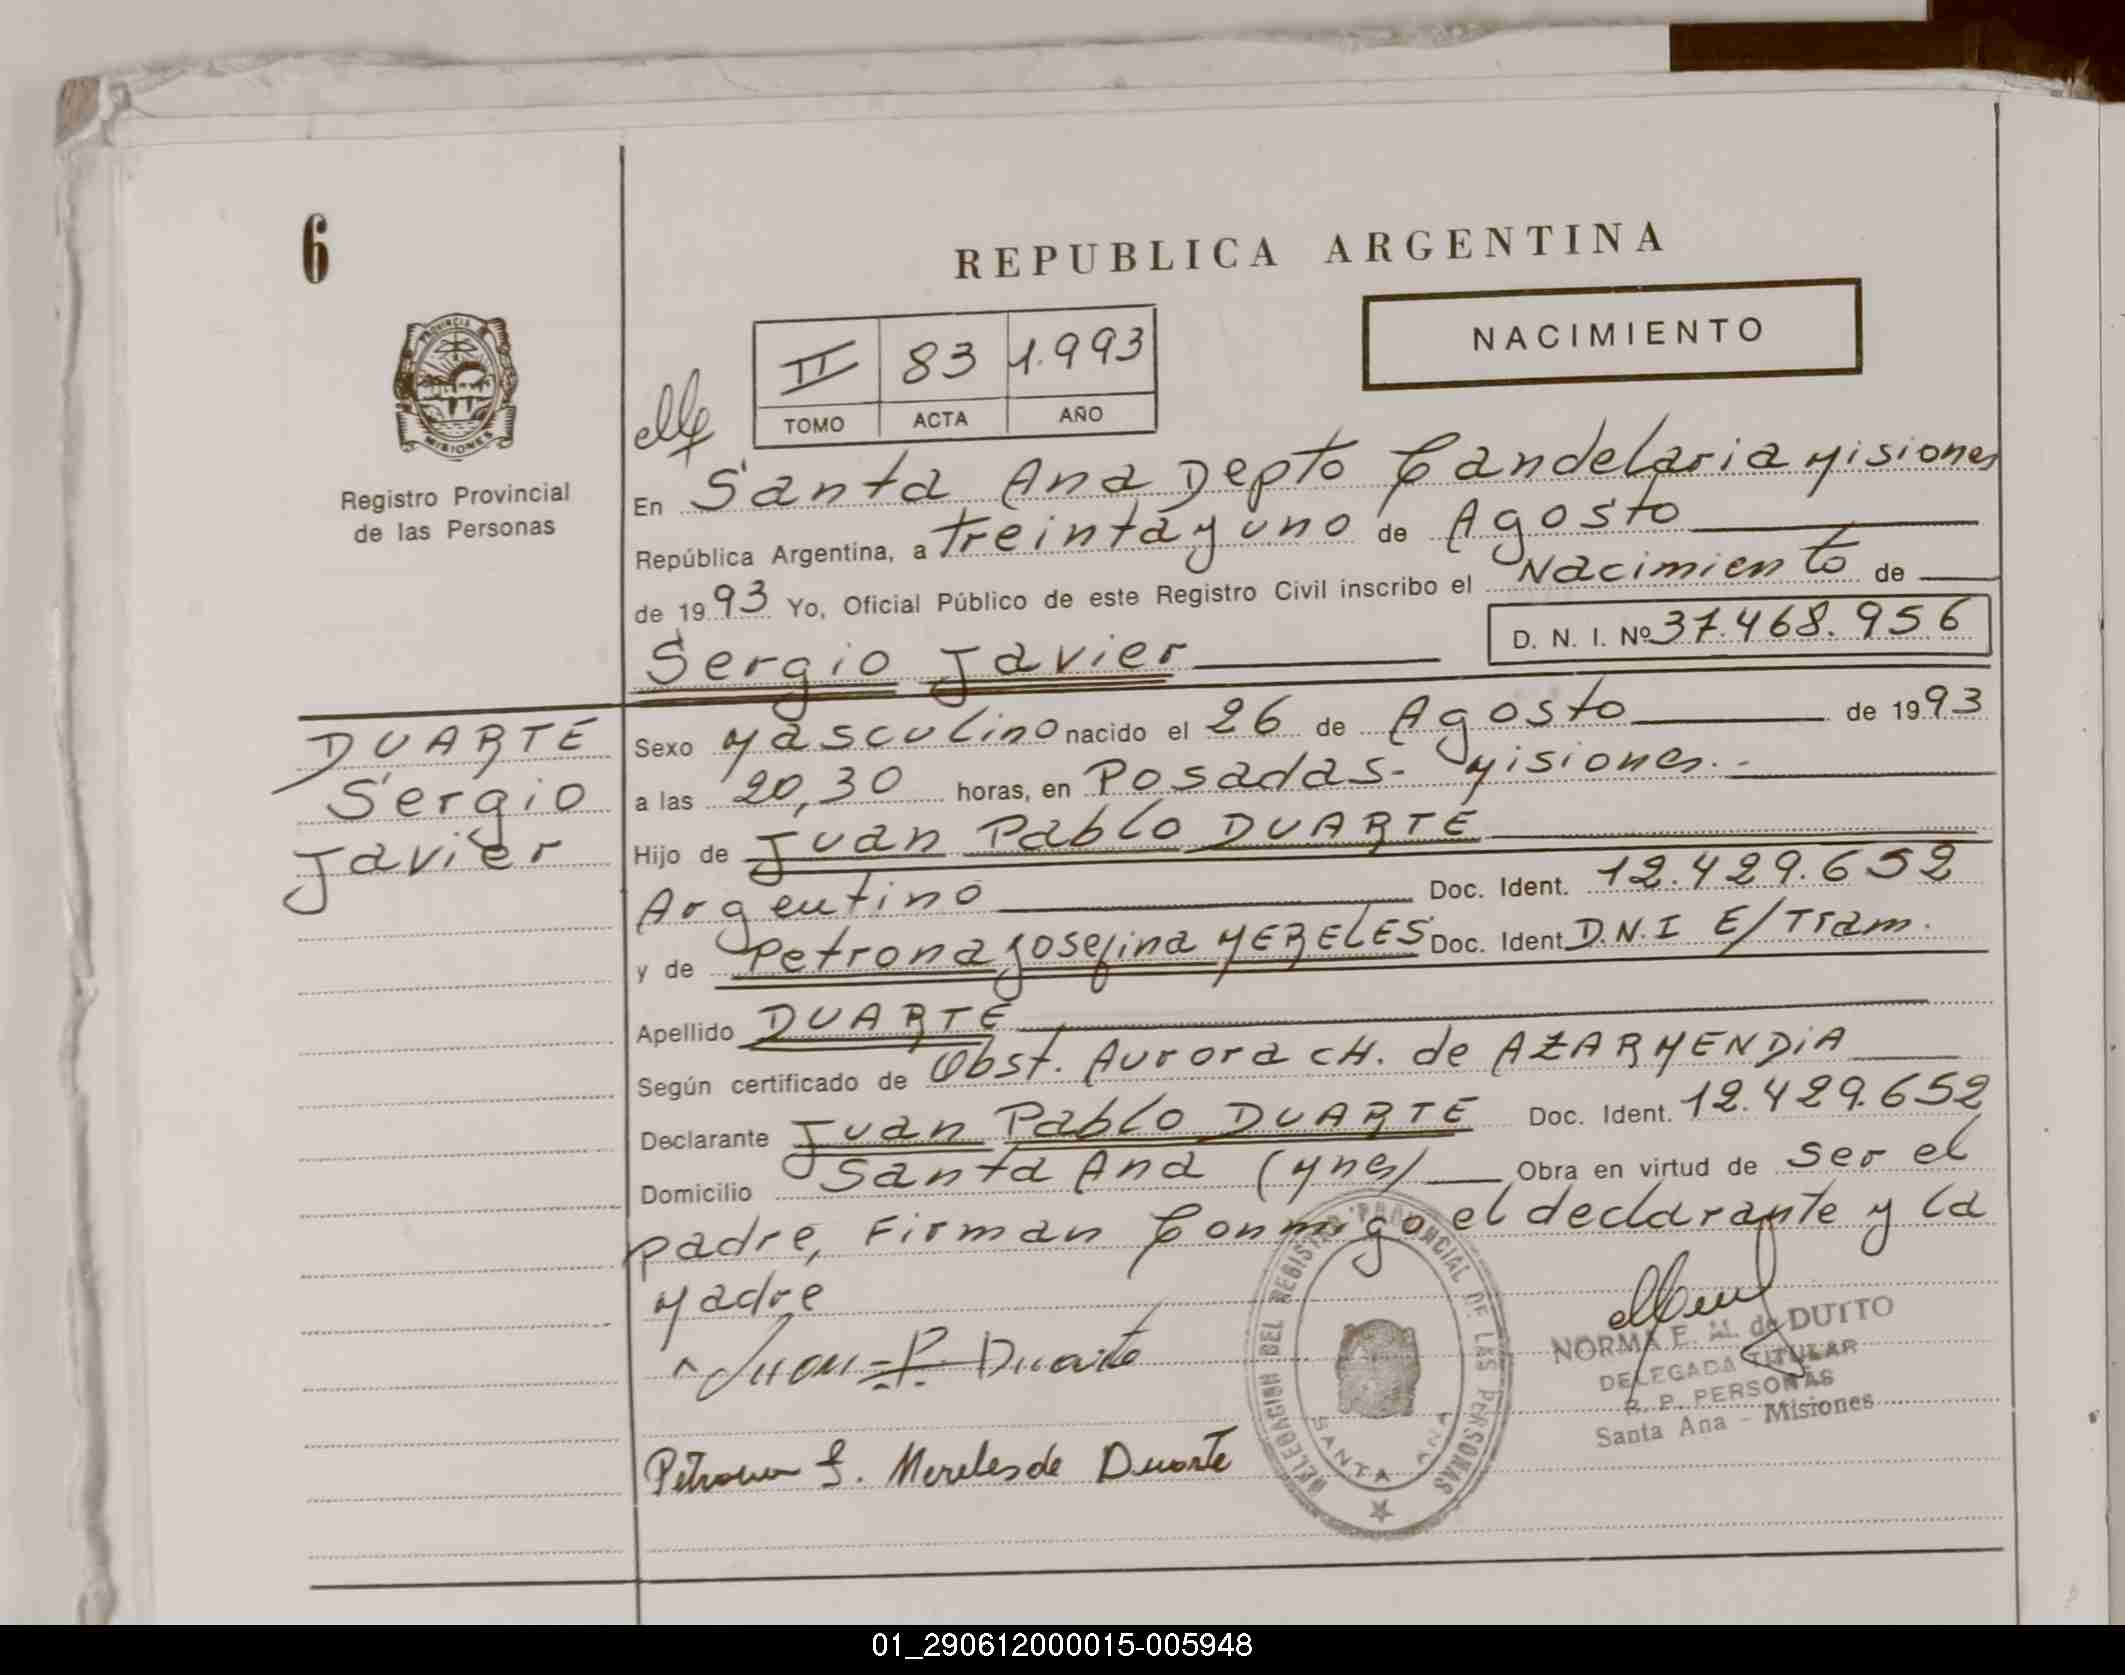 6
REPUBLICA ARGENTINA
NACIMIENTO
II 83 1.993
TOMO ACTA AÑO
PROVINCIA
MISIONES
Registro Provincial
de las Personas
En Santa Ana Depto Candelaria Misiones
República Argentina, a treinta y uno de Agosto
de 1993 Yo, Oficial Público de este Registro Civil inscribo el Nacimiento de
Sergio Javier D. N. I. Nº 37.468.956
DUARTE
Sergio
Javier
Sexo Masculino nacido el 26 de Agosto de 1993
a las 20,30 horas, en Posadas- Misiones.-
Hijo de Juan Pablo DUARTE
Argentino Doc. Ident. 12.429.652
y de Petrona Josefina MERELES Doc. Ident D.N.I E/Tram.
Apellido DUARTE
Según certificado de Obst. Aurora CH. de AZARMENDIA
Declarante Juan Pablo DUARTE Doc. Ident. 12.429.652
Domicilio Santa Ana (Mnes) Obra en virtud de ser el
padre, Firman Conmigo el declarante y la
Madre
Juan P. Duarte
Petrona J. Mereles de Duarte
DELEGACION DEL REGISTRO PROVINCIAL DE LAS PERSONAS
SANTA ANA
NORMA E. M. de DUTTO
DELEGADA TITULAR
R. P. PERSONAS
Santa Ana - Misiones
01_290612000015-005948